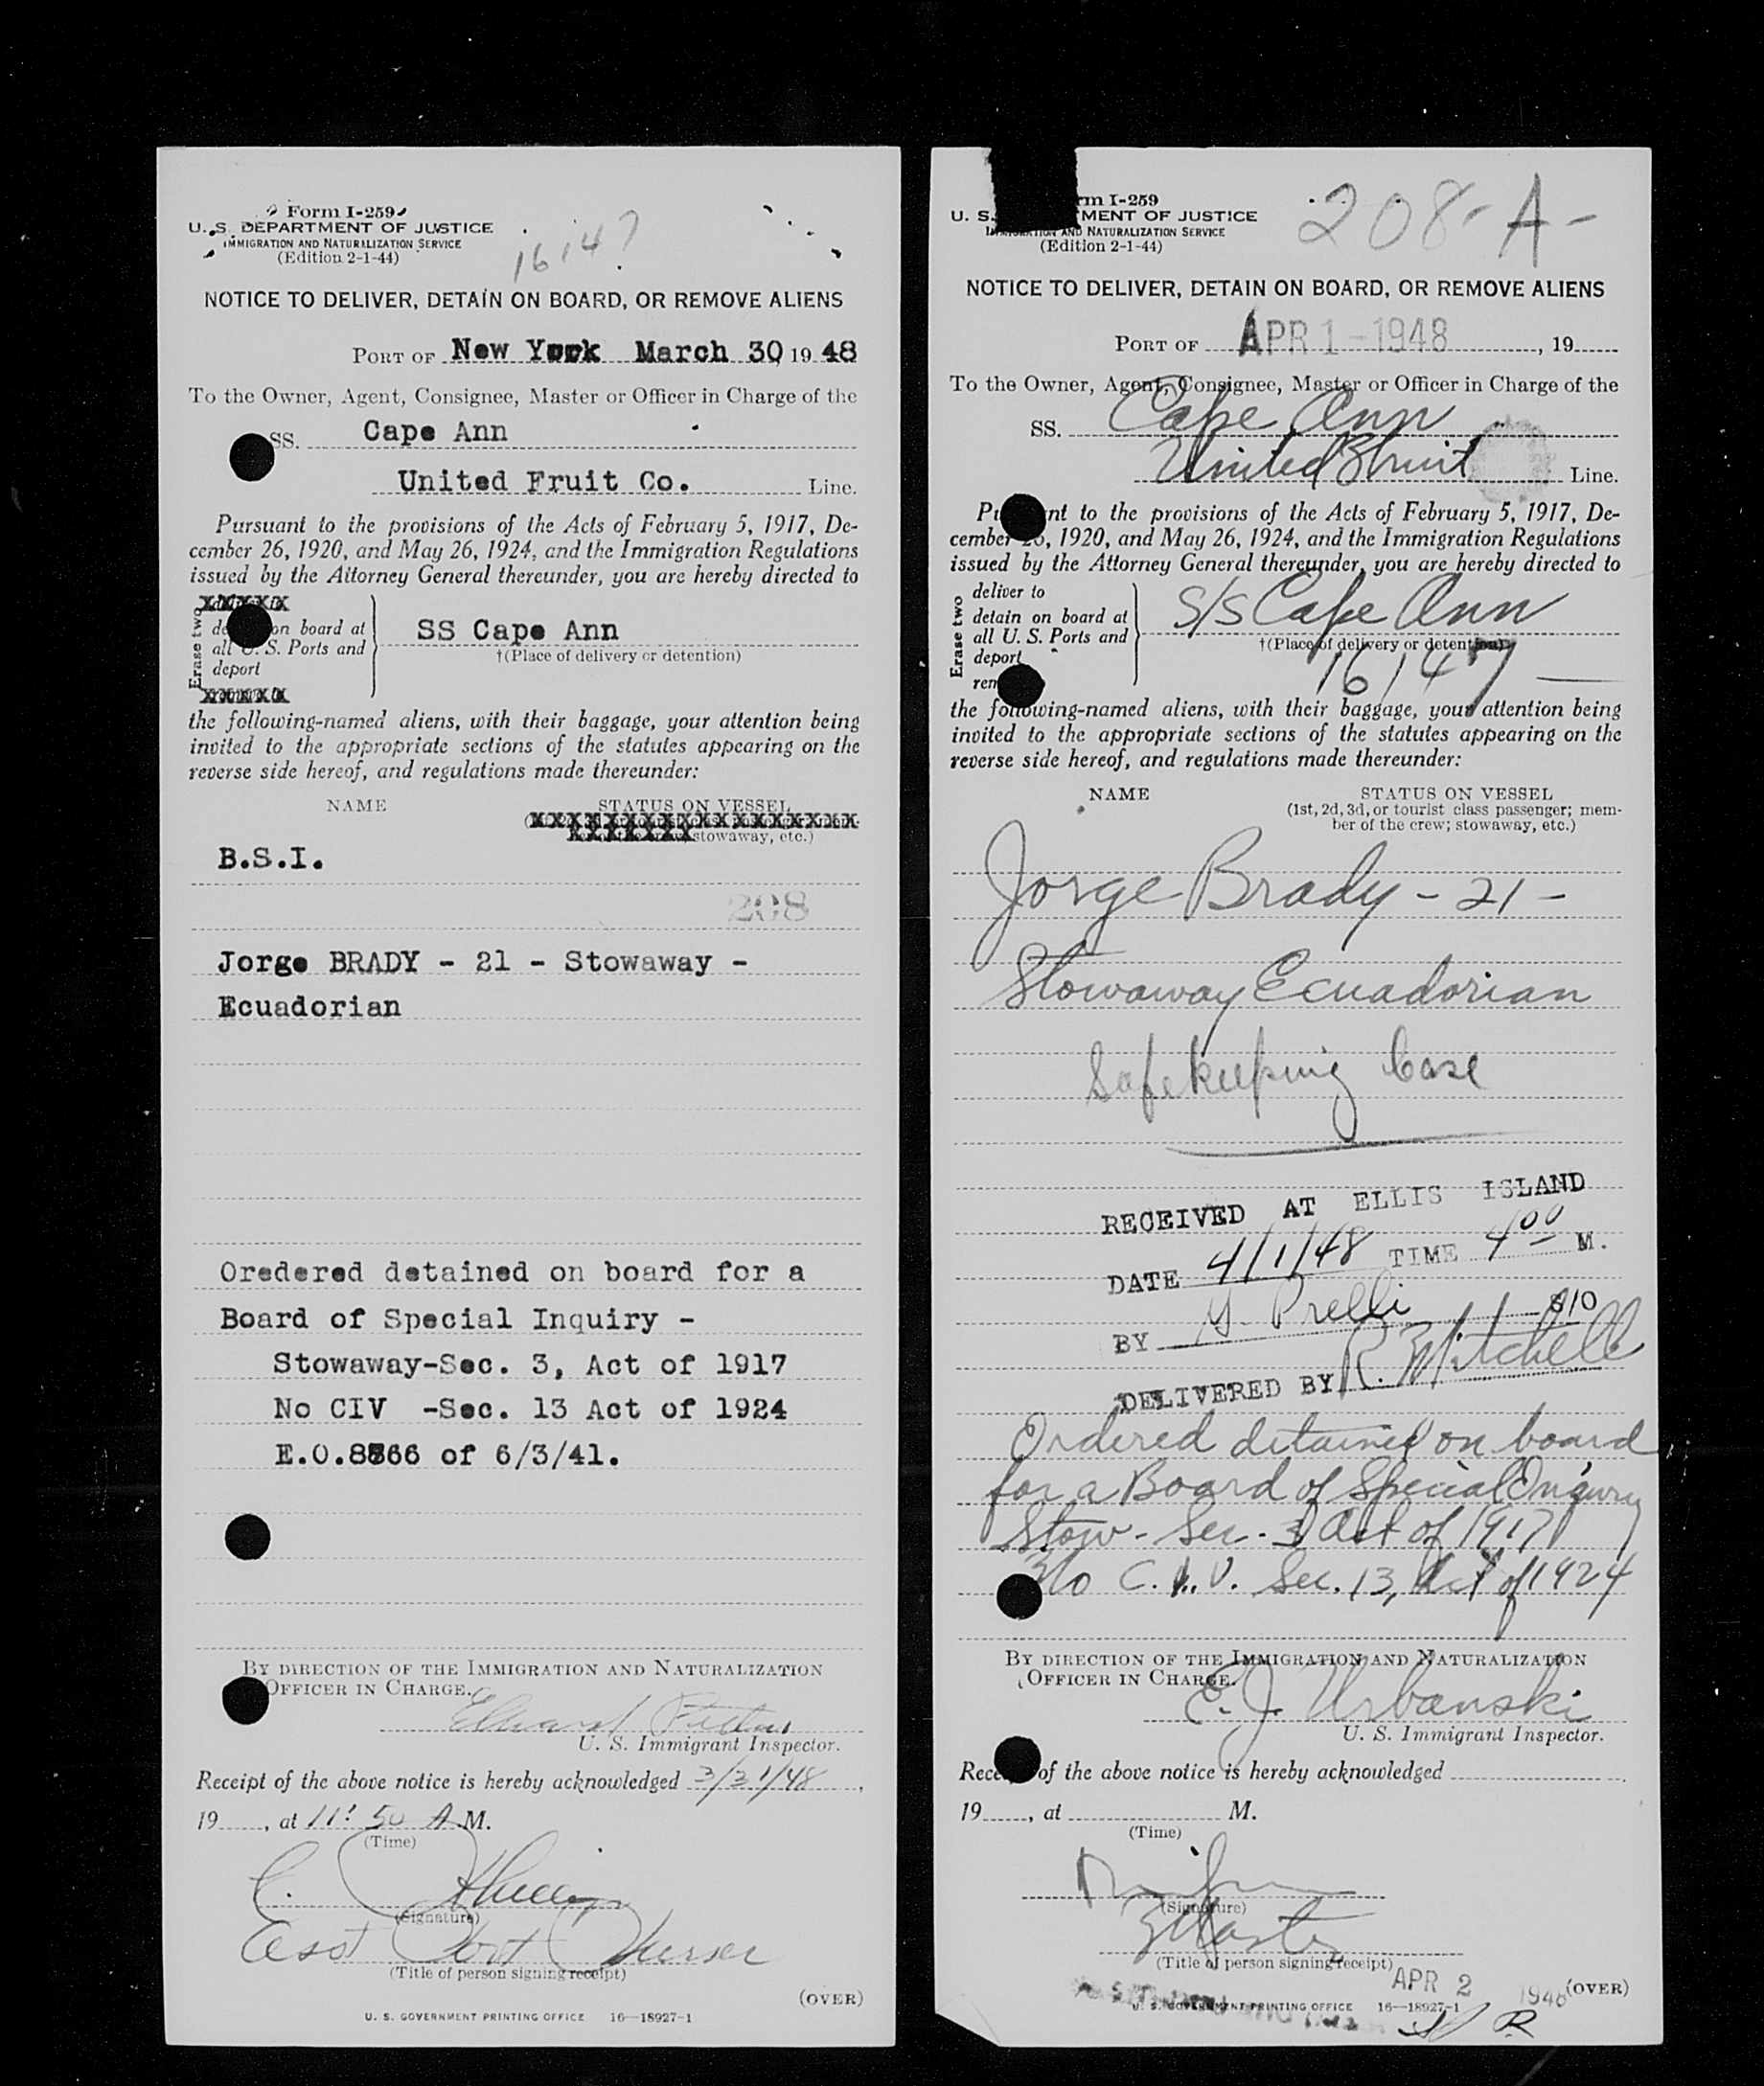 Form I-259
U. S. DEPARTMENT OF JUSTICE
IMMIGRATION AND NATURALIZATION SERVICE
(Edition 2-1-44)
16147
NOTICE TO DELIVER, DETAIN ON BOARD, OR REMOVE ALIENS
PORT OF New York March 30, 19 48
To the Owner, Agent, Consignee, Master or Officer in Charge of the
SS. Cape Ann
United Fruit Co. Line.
Pursuant to the provisions of the Acts of February 5, 1917, De-
cember 26, 1920, and May 26, 1924, and the Immigration Regulations
issued by the Attorney General thereunder, you are hereby directed to
Erase two
XXXXX
on board at
all U. S. Ports and
deport
XXXXX
SS Cape Ann
†(Place of delivery or detention)
the following-named aliens, with their baggage, your attention being
invited to the appropriate sections of the statutes appearing on the
reverse side hereof, and regulations made thereunder:
NAME STATUS ON VESSEL
stowaway, etc.)
B.S.I.
208
Jorge BRADY - 21 - Stowaway -
Ecuadorian
Oredered detained on board for a
Board of Special Inquiry -
Stowaway-Sec. 3, Act of 1917
No CIV -Sec. 13 Act of 1924
E.O.8766 of 6/3/41.
BY DIRECTION OF THE IMMIGRATION AND NATURALIZATION
OFFICER IN CHARGE.
Edward
U. S. Immigrant Inspector.
Receipt of the above notice is hereby acknowledged 3/31/48,
19, at 11:50 A M.
(Time)
(Signature)
Asst Port
(Title of person signing receipt)
(OVER)
U. S. GOVERNMENT PRINTING OFFICE 16—18927-1
rm I-259
U. S. MENT OF JUSTICE
AND NATURALIZATION SERVICE
(Edition 2-1-44)
208-A-
NOTICE TO DELIVER, DETAIN ON BOARD, OR REMOVE ALIENS
PORT OF APR 1-1948, 19
To the Owner, Agent, Consignee, Master or Officer in Charge of the
SS. Cape Ann
United Fruit Line.
Pu nt to the provisions of the Acts of February 5, 1917, De-
cember 26, 1920, and May 26, 1924, and the Immigration Regulations
issued by the Attorney General thereunder, you are hereby directed to
Erase two
deliver to
detain on board at
all U. S. Ports and
deport
rem
S/S Cape Ann
†(Place of delivery or detention)
16147
the following-named aliens, with their baggage, your attention being
invited to the appropriate sections of the statutes appearing on the
reverse side hereof, and regulations made thereunder:
NAME STATUS ON VESSEL
(1st, 2d, 3d, or tourist class passenger; mem-
ber of the crew; stowaway, etc.)
Jorge Brady - 21 -
Stowaway Ecuadorian
Safekeeping Case
RECEIVED AT ELLIS ISLAND
DATE 4/1/48 TIME 4 00 M.
BY Prelli SIO
DELIVERED BY R. Mitchell
Ordered detained on board
for a Board of Special Inquiry
Stow - Sec. 3 Act of 1917
No C.I.V. Sec. 13, Act of 1924
BY DIRECTION OF THE IMMIGRATION AND NATURALIZATION
OFFICER IN CHARGE.
E. J. Urbanski
U. S. Immigrant Inspector.
Rece of the above notice is hereby acknowledged
19, at M.
(Time)
(Signature)
Master
(Title of person signing receipt)
APR 2 1948
(OVER)
U. S. GOVERNMENT PRINTING OFFICE 16—18927-1